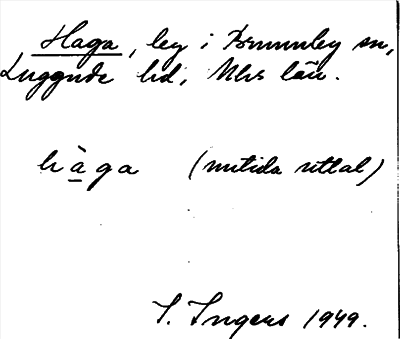 Haga, leg i Brunnby sn,
Luggude hd, Mhs län.
hàga (nutida uttal)
I. Ingers 1949.